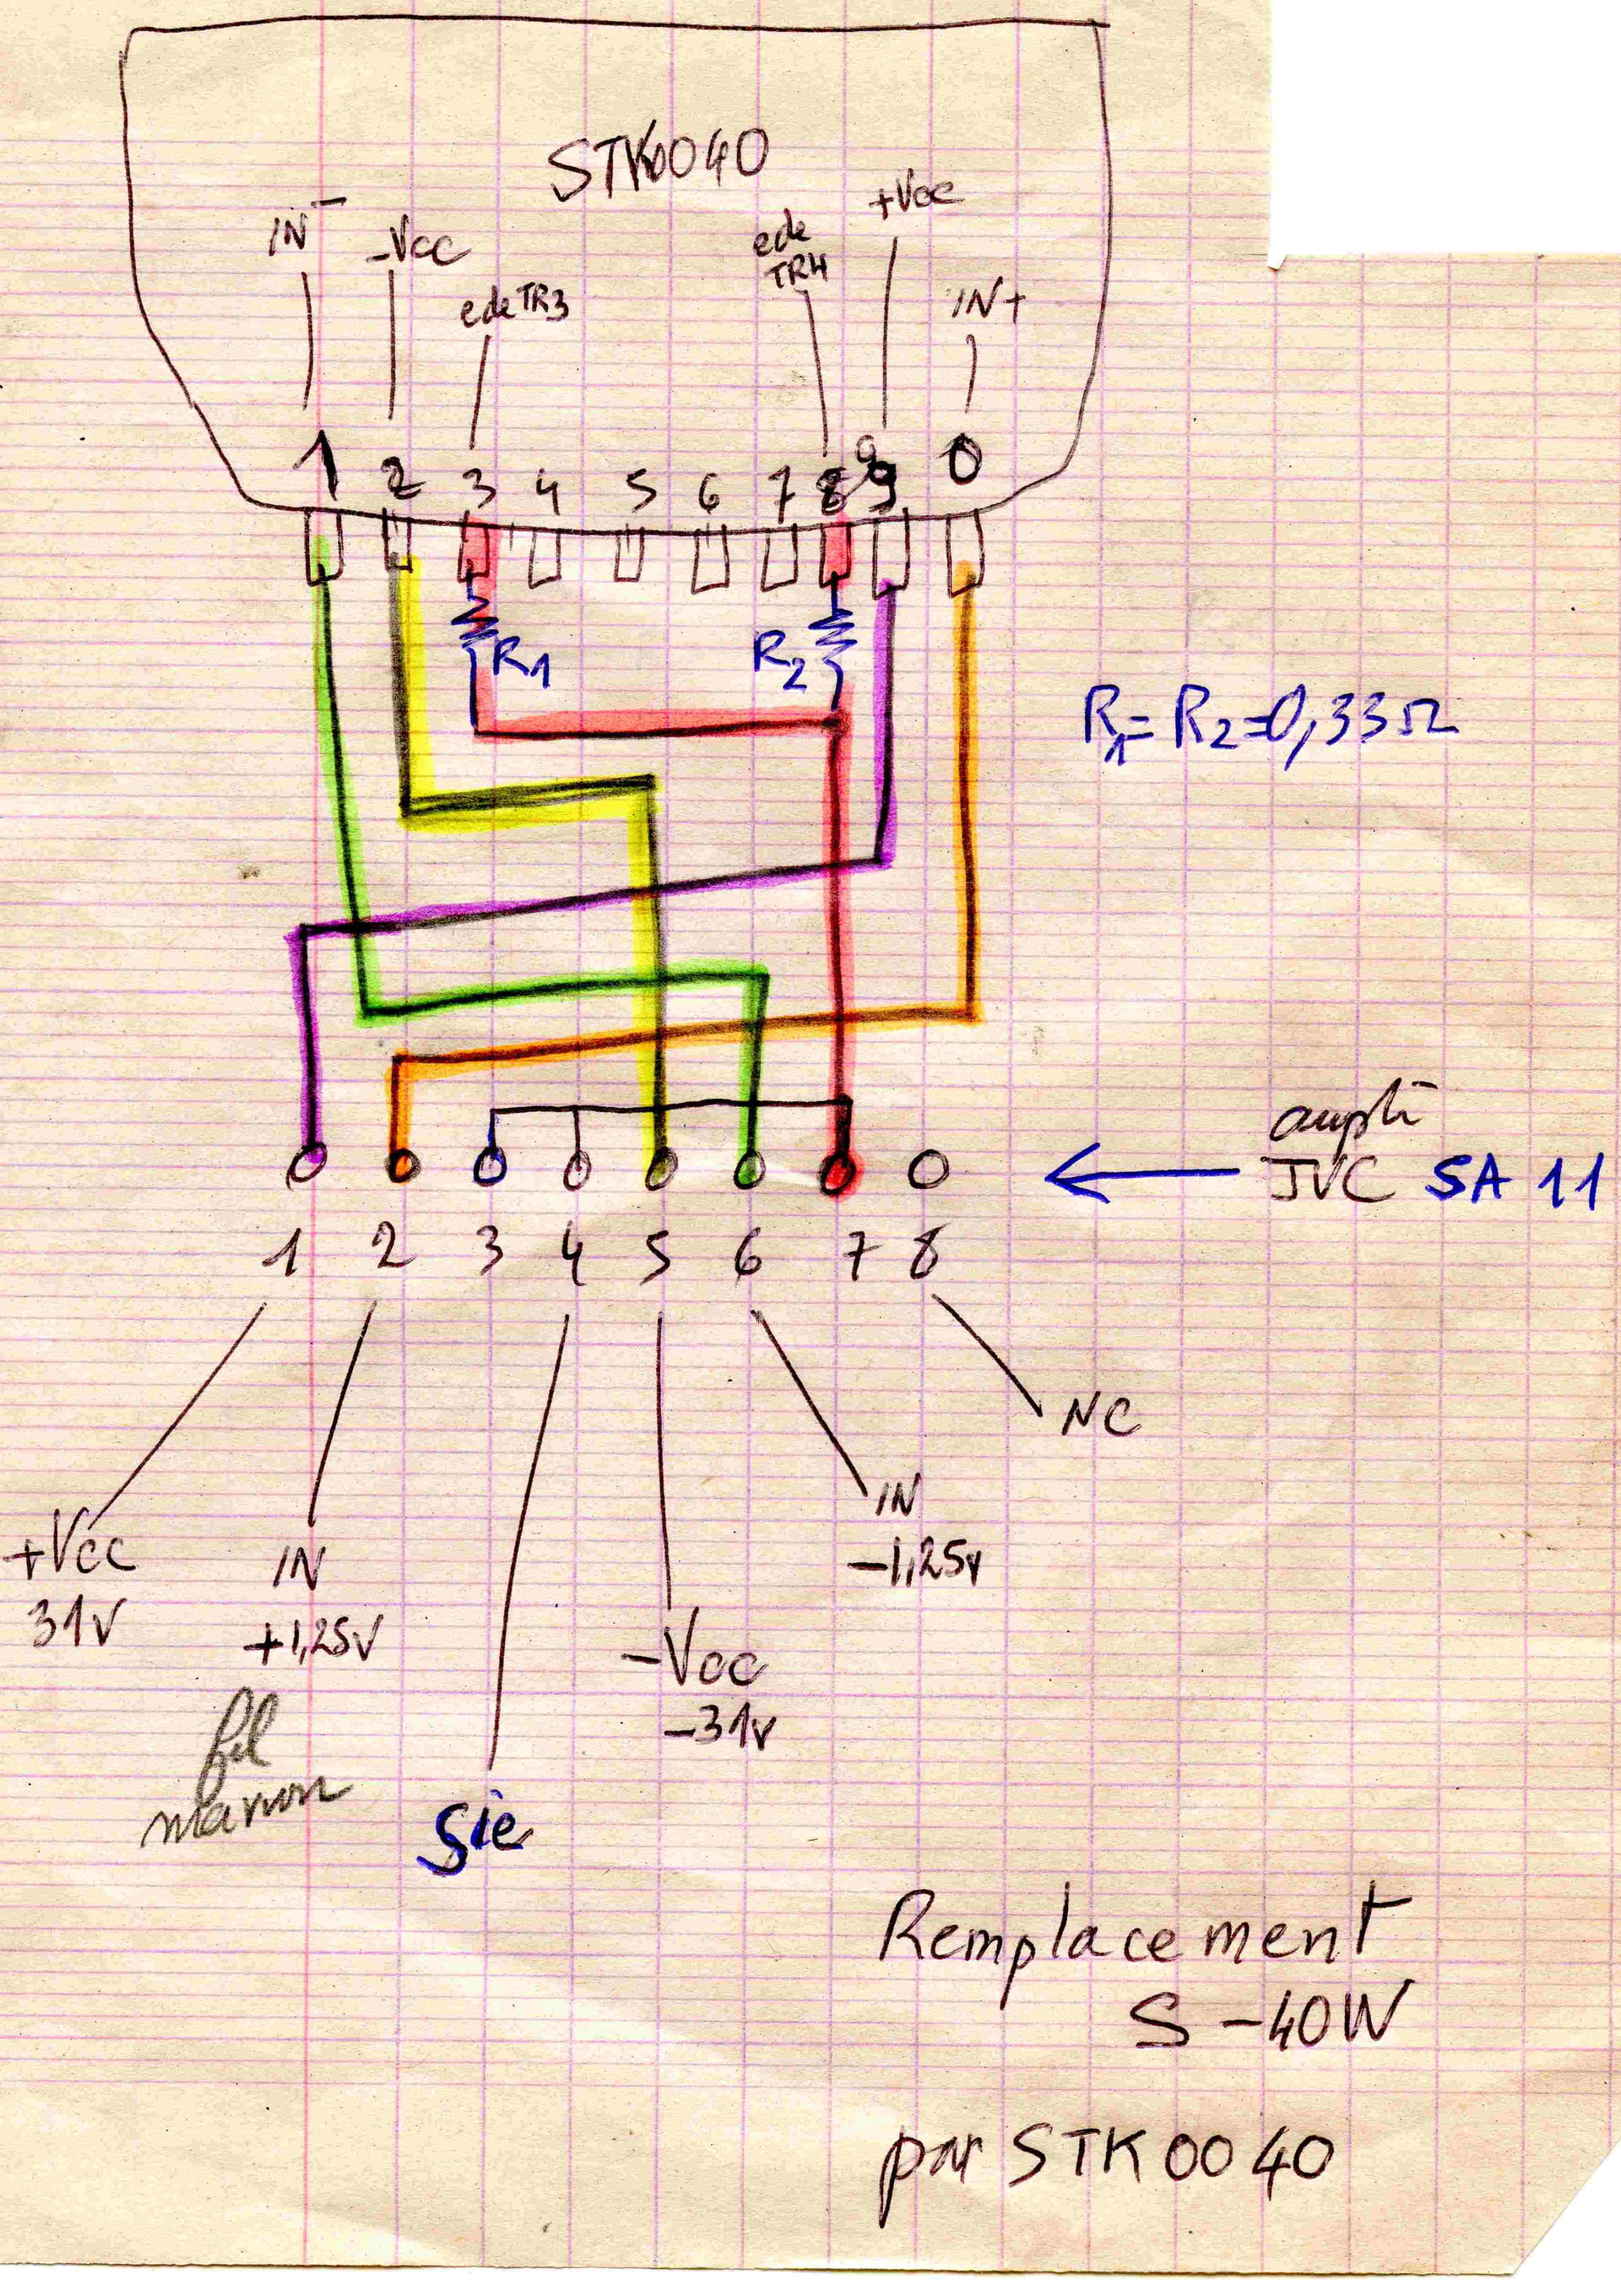 STK0040
IN-
-Vcc
e de TR3
e de
TR4
+Vcc
IN+
1 2 3 4 5 6 7 8 9 0
R1
R2
R1=R2=0,33Ω
ampli
JVC SA 11
1 2 3 4 5 6 7 8
+Vcc
31V
IN
+1,25V
fil
marron
Sie
-Vcc
-31V
IN
-1,25V
NC
Remplacement
S-40W
par STK0040